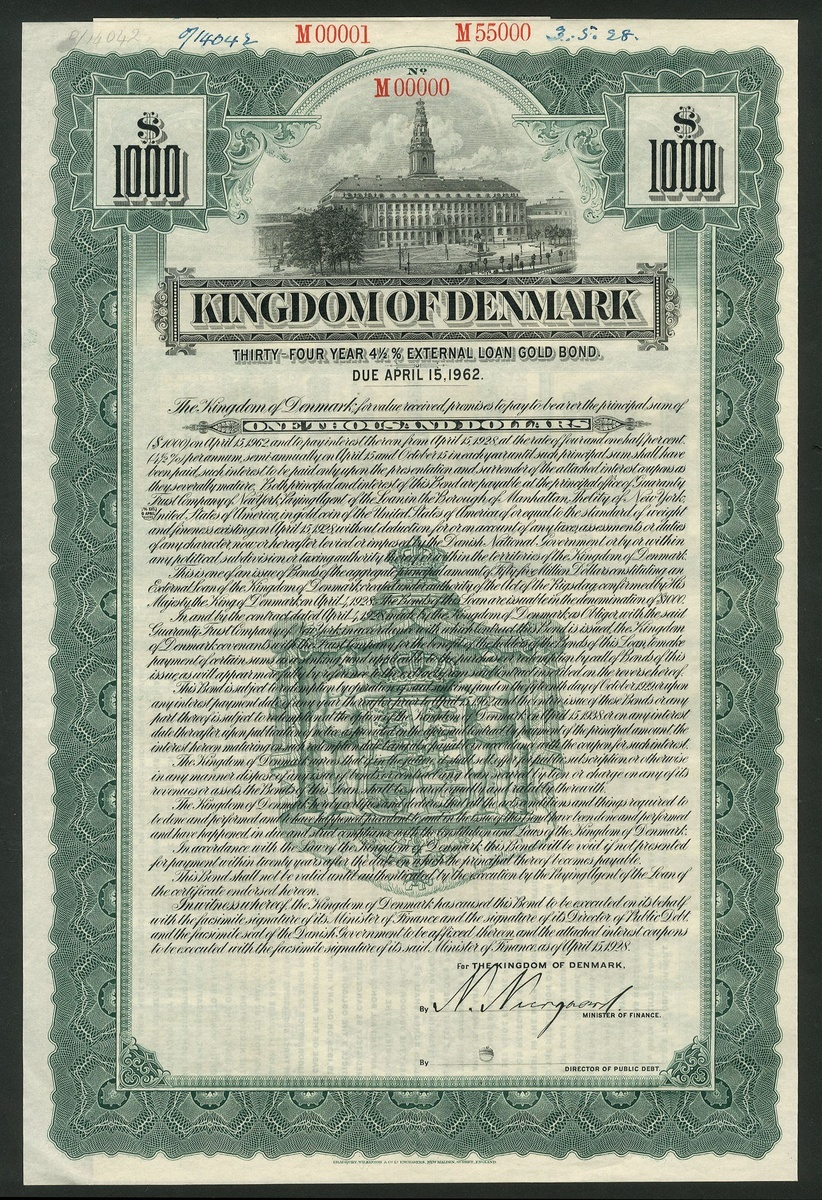 0/14042 0/14042 M 00001 M 55000 3.5.28.
No
M 00000
$ 1000 $ 1000
KINGDOM OF DENMARK
THIRTY-FOUR YEAR 4½% EXTERNAL LOAN GOLD BOND.
DUE APRIL 15, 1962.
The Kingdom of Denmark, for value received, promises to pay to bearer the principal sum of
ONE THOUSAND DOLLARS
($1000) on April 15, 1962 and to pay interest thereon from April 15, 1928, at the rate of four and one half per cent.
(4½%) per annum, semi-annually on April 15 and October 15 in each year until such principal sum shall have
been paid, such interest to be paid only upon the presentation and surrender of the attached interest coupons as
they severally mature. Both principal and interest of this Bond are payable at the principal office of Guaranty
Trust Company of New York, Paying Agent of the Loan in the Borough of Manhattan, The City of New York,
United States of America, in gold coin of the United States of America of or equal to the standard of weight
and fineness existing on April 15, 1928, without deduction for or on account of any taxes, assessments or duties
of any character now or hereafter levied or imposed by the Danish National Government or by or within
any political subdivision or taxing authority thereof or within the territories of the Kingdom of Denmark.
This is one of an issue of Bonds of the aggregate principal amount of Fifty five Million Dollars constituting an
External loan of the Kingdom of Denmark created under authority of the Act of the Rigsdag confirmed by His
Majesty the King of Denmark on April 4, 1928. The Bonds of the Loan are issuable in the denomination of $1000.
In and by the contract dated April 4, 1928 made by the Kingdom of Denmark, as Obligor with the said
Guaranty Trust Company of New York in accordance with which contract this Bond is issued, the Kingdom
of Denmark covenants with the Trust Company, for the benefit of the holders of the Bonds of this Loan, to make
payment of certain sums as a sinking fund applicable to the purchase or redemption by call of Bonds of this
issue, as will appear more fully by reference to the extracts from said contract inscribed on the reverse hereof.
This Bond is subject to redemption by operation of said sinking fund on the fifteenth day of October 1929 or upon
any interest payment date in any year thereafter prior to April 15, 1962 and the entire issue of these Bonds or any
part thereof is subject to redemption at the option of the Kingdom of Denmark on April 15, 1938 or on any interest
date thereafter upon published notice as provided in the aforesaid contract by payment of the principal amount, the
interest hereon maturing on such redemption date being also payable in accordance with the coupon for such interest.
The Kingdom of Denmark covenants that if in the future it shall sell, offer for public subscription or otherwise
in any manner dispose of any issue of bonds or contract any loan secured by lien or charge on any of its
revenues or assets, the Bonds of this loan shall be secured equally and ratably therewith.
The Kingdom of Denmark hereby certifies and declares that all the acts, conditions and things required to
be done and performed and to have happened precedent to and in the issue of this Bond, have been done and performed
and have happened, in due and strict compliance with the Constitution and Laws of the Kingdom of Denmark.
In accordance with the Law of the Kingdom of Denmark, this Bond will be void if not presented
for payment within twenty years after the date on which the principal thereof becomes payable.
This Bond shall not be valid until authenticated by the execution by the Paying Agent of the Loan of
the certificate endorsed hereon.
In witness whereof, the Kingdom of Denmark has caused this Bond to be executed on its behalf
with the facsimile signature of its Minister of Finance and the signature of its Director of Public Debt
and the facsimile seal of the Danish Government to be affixed thereon, and the attached interest coupons
to be executed with the facsimile signature of its said Minister of Finance as of April 15, 1928.
For THE KINGDOM OF DENMARK,
By N. Neergaard.
MINISTER OF FINANCE.
By
DIRECTOR OF PUBLIC DEBT
BRADBURY, WILKINSON & Co. Ld. ENGRAVERS, NEW MALDEN, SURREY, ENGLAND.